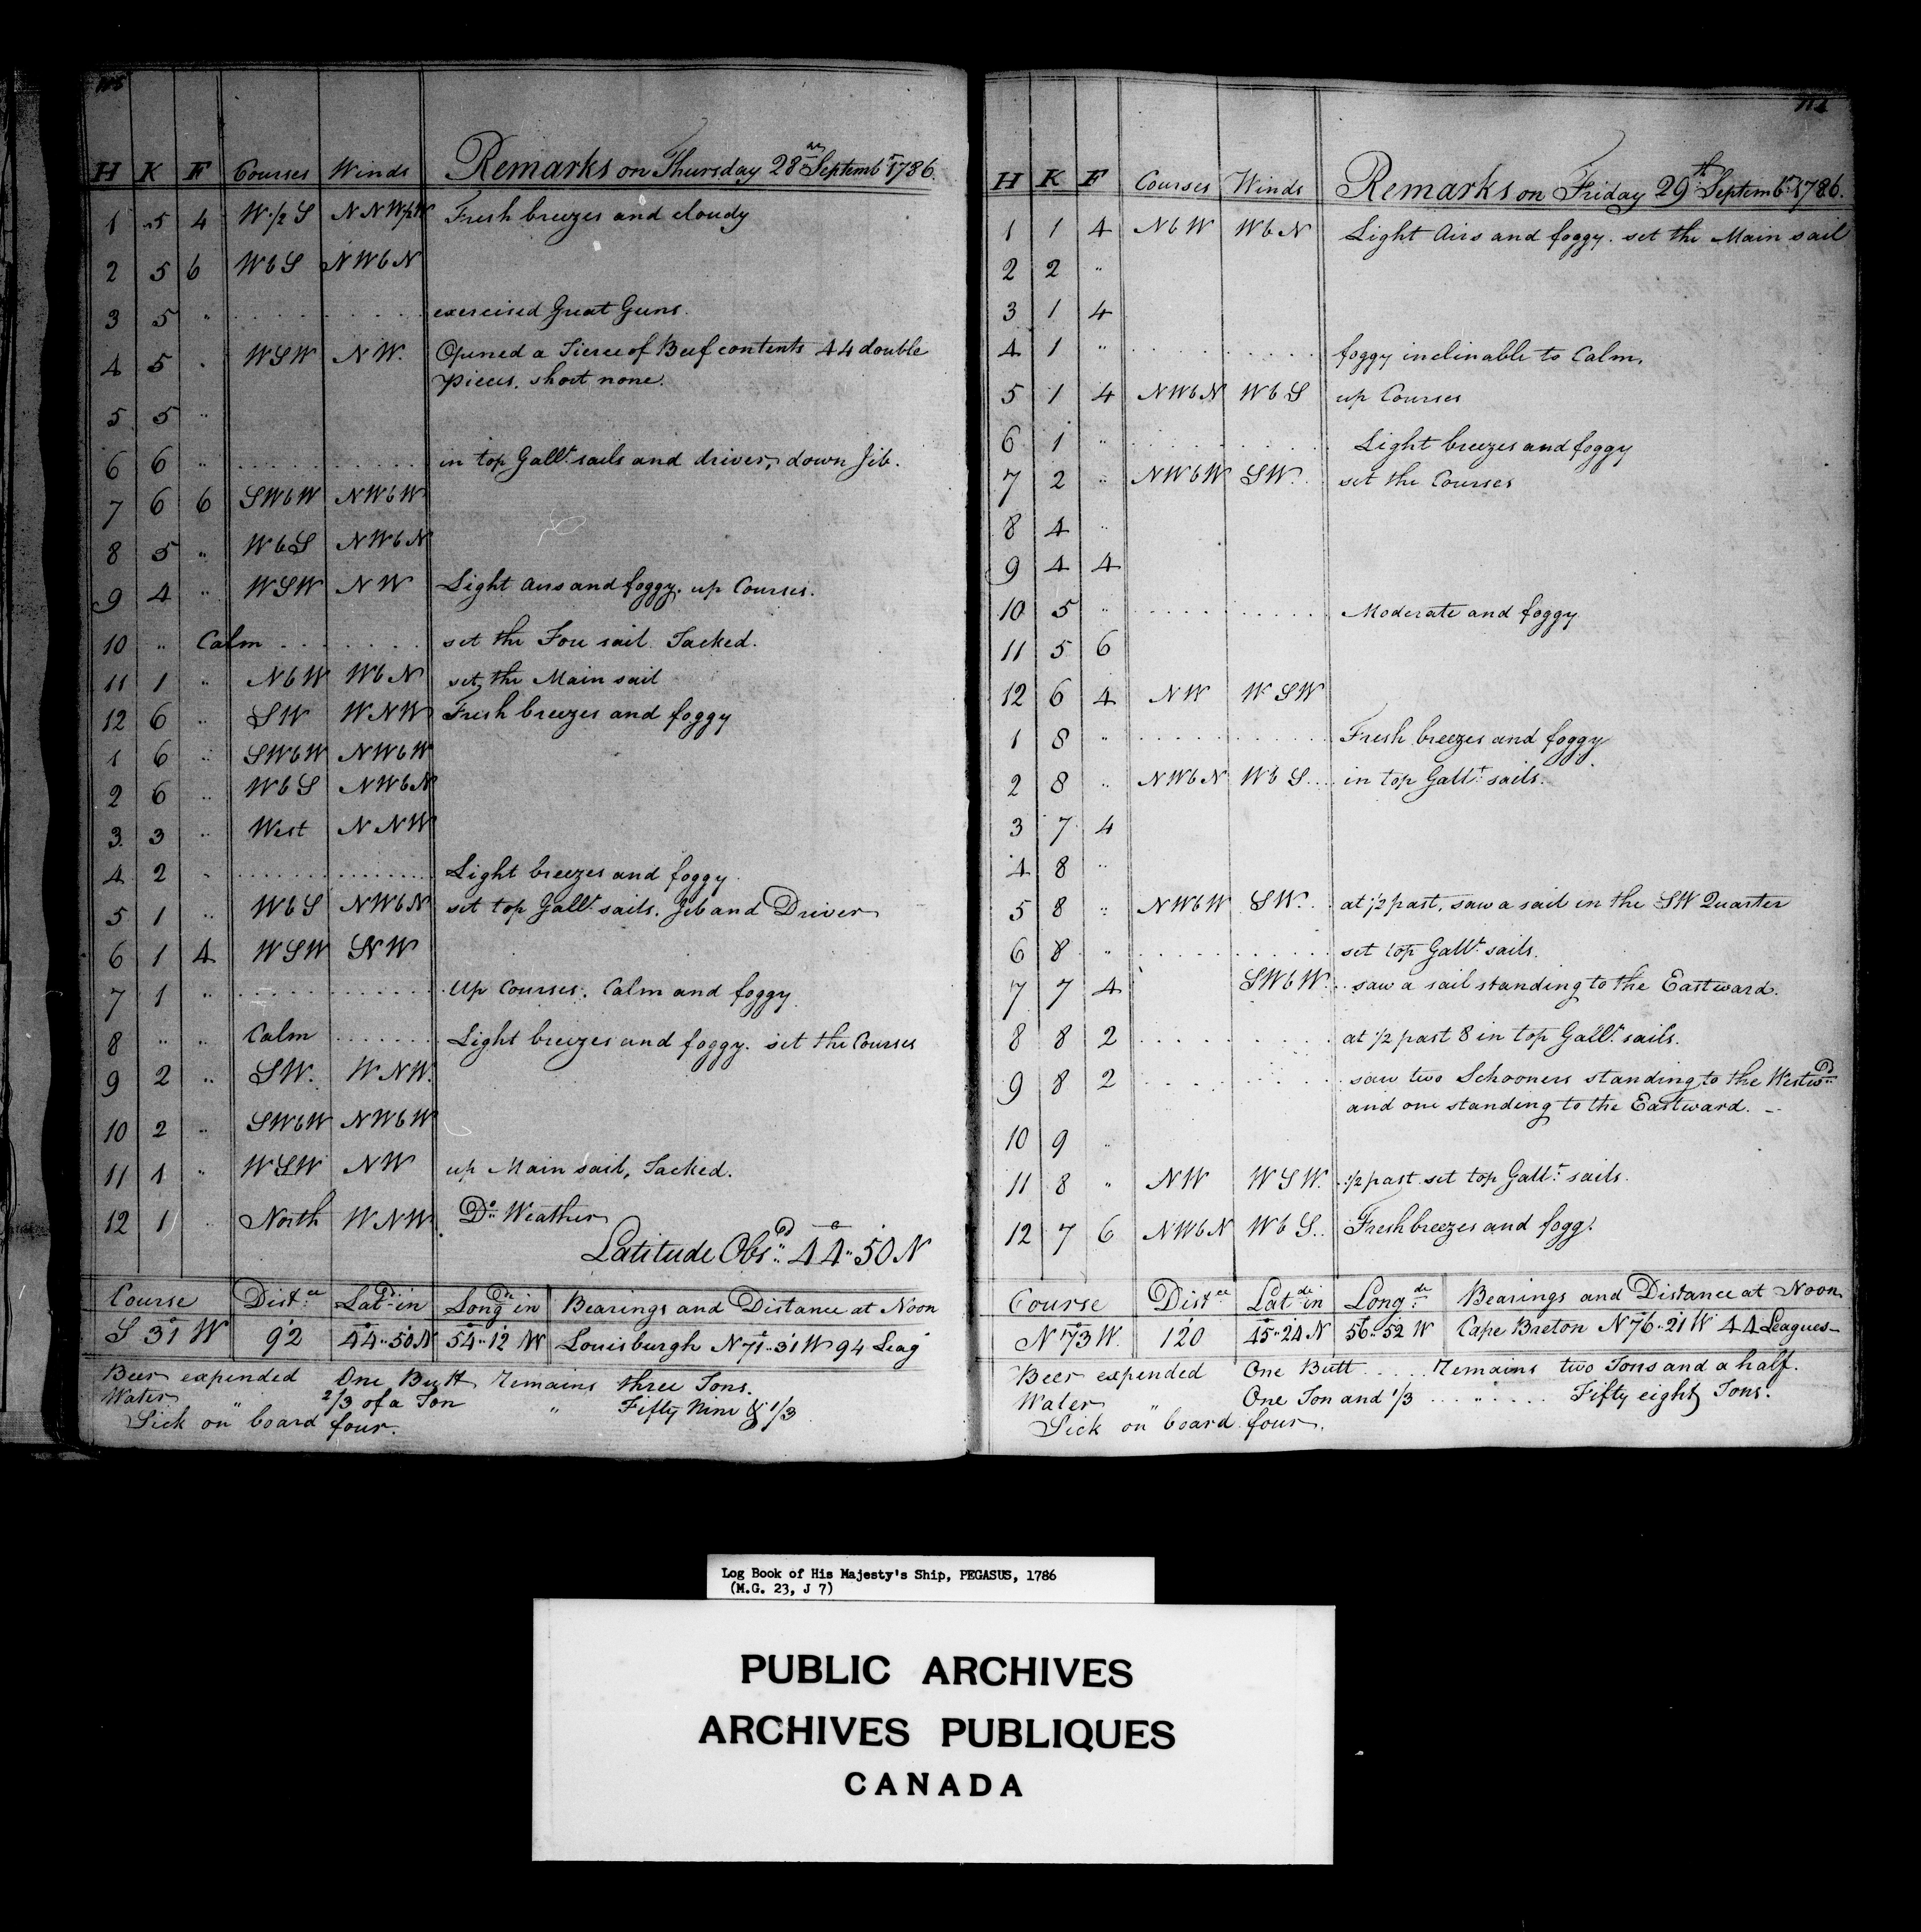 H K F Courses Winds Remarks on Thursday 28th Septembr 1786.
1 5 4 W 1/2 S Fresh breezes and cloudy
2 5 6 WbS NWbN
3 5 " exercised Great Guns.
4 5 " WSW NW. Opened a Tierce of Beef contents 44 double
pieces. short none.
5 5 "
6 6 " in top Gallt sails and driver, down Jib.
7 6 6 SWbW NWbW
8 5 " WbS NWbN
9 4 " WSW NW Light airs and foggy. up Courses.
10 " Calm set the Fore sail. Tacked.
11 1 " NbW WbN set the Main sail
12 6 " SW WNW Fresh breezes and foggy
1 6 " SWbW NWbW
2 6 " WbS NWbN
3 3 " West NNW
4 2 " Light breezes and foggy.
5 1 " WbS NWbN set top Gallt sails. Jib and Driver
6 1 4 WSW NW
7 1 " up Courses. Calm and foggy
8 " " Calm Light breezes and foggy. set the Courses
9 2 " SW. WNW.
10 2 " SWbW NWbW
11 1 " WSW NW up Main sail, Tacked.
12 1 " North WNW. Do Weather
Latitude Obsd 44" 50 N
Course Distce Latd in Longde in Bearings and Distance at Noon
S 31 W 92 44" 50 N 54" 12 W Louisburgh N 71" 31 W 94 Leag
Beer expended One Butt Remains three Tons.
Water " 2/3 of a Ton " Fifty Nine & 1/3
Sick on board four.
H K F Courses Winds Remarks on Friday 29th Septembr 1786.
1 1 4 NbW WbN Light Airs and foggy. set the Main sail
2 2 "
3 1 4
4 1 " foggy inclinable to Calm.
5 1 4 NWbN WbS up Courses
6 1 " Light breezes and foggy
7 2 " NWbW SW. set the Courses
8 4 "
9 4 4
10 5 " Moderate and foggy
11 5 6
12 6 4 NW WSW
1 8 " Fresh breezes and foggy
2 8 " NWbN WbS in top Gallt sails.
3 7 4
4 8 "
5 8 " NWbW SW. at 1/2 past, saw a sail in the SW Quarter
6 8 " set top Gallt sails.
7 7 4 SWbW. saw a sail standing to the Eastward.
8 8 2 at 1/2 past 8 in top Gallt sails.
9 8 2 saw two Schooners standing to the Westwd
and one standing to the Eastward.
10 9 "
11 8 " NW WSW. 1/2 past set top Gallt sails.
12 7 6 NWbN WbS. Fresh breezes and fogg.
Course Distce Latde in Longde Bearings and Distance at Noon
N 73 W. 120 45" 24 N 56" 52 W Cape Breton N 76" 21 W 44 Leagues
Beer expended One Butt Remains two Tons and a half.
Water " One Ton and 1/3 " Fifty eight Tons.
Sick on board four.
Log Book of His Majesty's Ship, PEGASUS, 1786
(M.G. 23, J 7)
PUBLIC ARCHIVES
ARCHIVES PUBLIQUES
CANADA